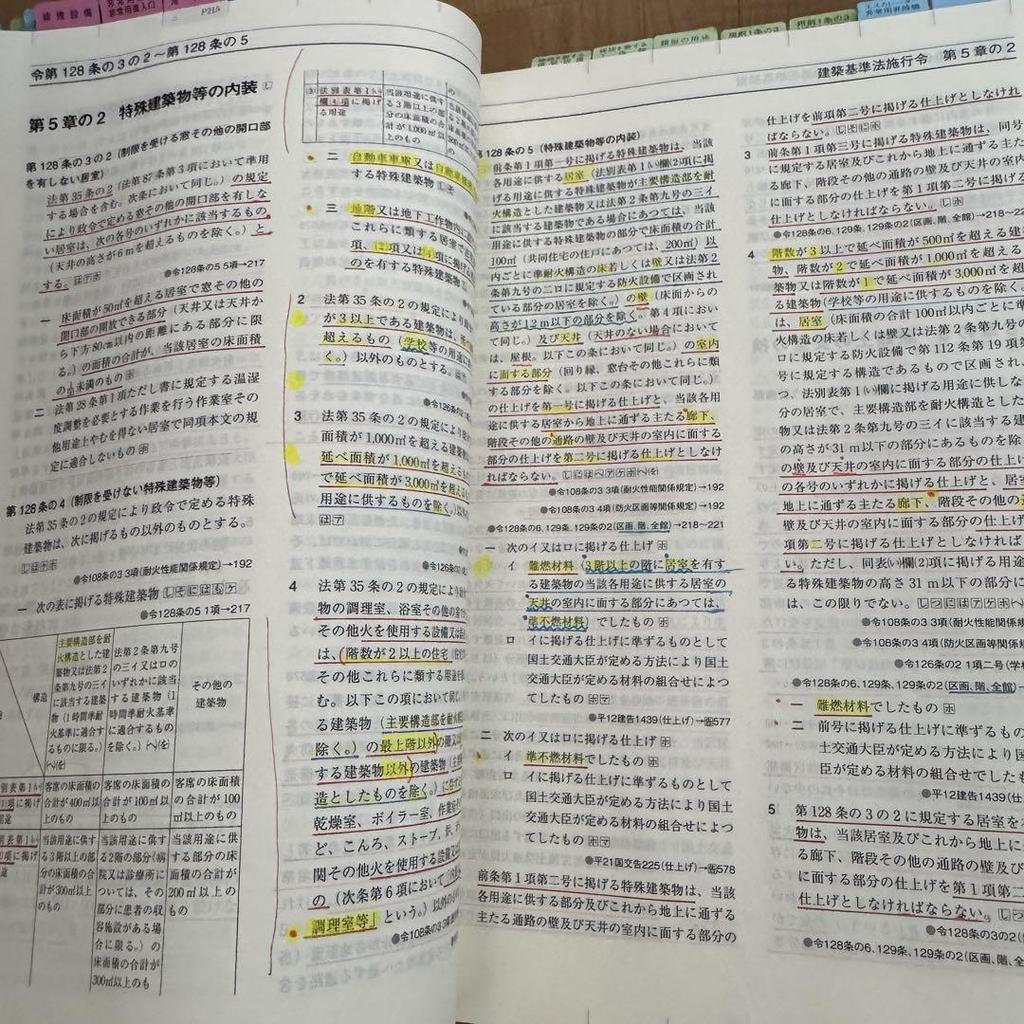 排煙設備
非常用進入口
P215
類似の用途
令第128条の3の2～第128条の5
第5章の2 特殊建築物等の内装
第128条の3の2(制限を受ける窓その他の開口部
を有しない居室)
法第35条の2(法第87条第3項において準用
する場合を含む。次条において同じ。)の規定
により政令で定める窓その他の開口部を有しな
い居室は、次の各号のいずれかに該当するもの
(天井の高さが6mを超えるものを除く。)と
する。
●令128条の5 5項→217
一 床面積が50㎡を超える居室で窓その他の
開口部の開放できる部分(天井又は天井か
ら下方80cm以内の距離にある部分に限
る。)の面積の合計が、当該居室の床面積
の1/50未満のもの
二 法第28条第1項ただし書に規定する温湿
度調整を必要とする作業を行う作業室その
他用途上やむを得ない居室で同項本文の規
定に適合しないもの
第128条の4(制限を受けない特殊建築物等)
法第35条の2の規定により政令で定める特殊
建築物は、次に掲げるもの以外のものとする。
●令108条の3 3項(耐火性能関係規定)→192
一 次の表に掲げる特殊建築物
●令128条の5 1項→217
構造
主要構造部を耐
火構造とした建
築物又は法第2
条第九号の三イ
に該当する建築
物(1時間準耐火
基準に適合する
ものに限る。)
法第2条第九号
の三イ又はロの
いずれかに該当
する建築物(1
時間準耐火基準
に適合するもの
を除く。)
その他の
建築物
客席の床面積の
合計が400㎡以
上のもの
客席の床面積の
合計が100㎡以
上のもの
客席の床面積
の合計が100
㎡以上のもの
当該用途に供す
る3階以上の部
分の床面積の合
計が300㎡以上
のもの
当該用途に供す
る2階の部分(病
院又は診療所に
ついては、その
部分に患者の収
容施設がある場
合に限る。)の
床面積の合計が
300㎡以上のも
当該用途に供
する部分の床
面積の合計が
200㎡以上の
もの
法別表第1(い)
欄(4)項に掲げ
る用途
当該用途に供す
る3階以上の部
分の床面積の合
計が1,000㎡以
上のもの
二 自動車車庫又は自動車修
する特殊建築物
三 地階又は地下工作物内に
これらに類する居室で法
項、(2)項又は(4)項に掲げ
のを有する特殊建築物
2 法第35条の2の規定により
が3以上である建築物は、
超えるもの(学校等の用途に
く。)以外のものとする。
3 法第35条の2の規定により
面積が1,000㎡を超える建築
延べ面積が1,000㎡を超えるも
で延べ面積が3,000㎡を超え
用途に供するものを除く。)以
4 法第35条の2の規定により
物の調理室、浴室その他の室
その他火を使用する設備又は
は、(階数が2以上の住宅(住
その他これらに類する用途
む。以下この項において同じ
る建築物(主要構造部を耐火
除く。)の最上階以外の階又
する建築物以外の建築物(主
造としたものを除く。)に
乾燥室、ボイラー室、作業室
ど、こんろ、ストーブ、炉、
関その他火を使用する設備又
の(次条第6項において「
調理室等」という。)以外のも
●令108条の3 3項
建築基準法施行令 第5章の2
第128条の5(特殊建築物等の内装)
前条第1項第一号に掲げる特殊建築物は、当該
各用途に供する居室(法別表第1(い)欄(2)項に掲
げる用途に供する特殊建築物が主要構造部を耐
火構造とした建築物又は法第2条第九号の三イ
に該当する建築物である場合にあつては、当該
用途に供する特殊建築物の部分で床面積の合計
100㎡(共同住宅の住戸にあつては、200㎡)以
内ごとに準耐火構造の床若しくは壁又は法第2
条第九号の二ロに規定する防火設備で区画され
ている部分の居室を除く。)の壁(床面からの
高さが1.2m以下の部分を除く。第4項におい
て同じ。)及び天井(天井のない場合において
は、屋根。以下この条において同じ。)の室内
に面する部分(回り縁、窓台その他これらに類
する部分を除く。以下この条において同じ。)
の仕上げを第一号に掲げる仕上げと、当該各用
途に供する居室から地上に通ずる主たる廊下、
階段その他の通路の壁及び天井の室内に面する
部分の仕上げを第二号に掲げる仕上げとしなけ
ればならない。
●令108条の3 3項(耐火性能関係規定)→192
●令108条の3 4項(防火区画関係規定)→192
●令128条の6、129条、129条の2(区画、階、全館)→218～221
一 次のイ又はロに掲げる仕上げ
イ 難燃材料(3階以上の階に居室を有す
る建築物の当該各用途に供する居室の
天井の室内に面する部分にあつては、
準不燃材料)でしたもの
ロ イに掲げる仕上げに準ずるものとして
国土交通大臣が定める方法により国土
交通大臣が定める材料の組合せによつ
てしたもの
●平12建告1439(仕上げ)→告577
二 次のイ又はロに掲げる仕上げ
イ 準不燃材料でしたもの
ロ イに掲げる仕上げに準ずるものとして
国土交通大臣が定める方法により国土
交通大臣が定める材料の組合せによつ
てしたもの
●平21国交告225(仕上げ)→告578
前条第1項第二号に掲げる特殊建築物は、当該
各用途に供する部分及びこれから地上に通ずる
主たる通路の壁及び天井の室内に面する部分の
仕上げを前項第二号に掲げる仕上げとしなけれ
ばならない。
3 前条第1項第三号に掲げる特殊建築物は、同号
に規定する居室及びこれから地上に通ずる主た
る廊下、階段その他の通路の壁及び天井の室内に面
する部分の仕上げを第1項第二号に掲げる
仕上げとしなければならない。
●令128条の6、129条、129条の2(区画、階、全館)→218～22
4 階数が3以上で延べ面積が500㎡を超える建
物、階数が2で延べ面積が1,000㎡を超える
又は階数が1で延べ面積が3,000㎡を超
る建築物(学校等の用途に供するものを除く。
は、居室(床面積の合計100㎡以内ごとに準
火構造の床若しくは壁又は法第2条第九号の
ロに規定する防火設備で第112条第19項第
号に規定する構造であるもので区画され
つ、法別表第1(い)欄に掲げる用途に供しな
分の居室で、主要構造部を耐火構造とした
物又は法第2条第九号の三イに該当する建
の高さが31m以下の部分にあるものを除
の壁及び天井の室内に面する部分の仕上げ
の各号のいずれかに掲げる仕上げと、居
地上に通ずる主たる廊下、階段その他の
壁及び天井の室内に面する部分の仕上げ
項第二号に掲げる仕上げとしなければ
い。ただし、同表(い)欄(2)項に掲げる用
る特殊建築物の高さ31m以下の部分に
は、この限りでない。
●令108条の3 3項(耐火性能関
●令108条の3 4項(防火区画等関
●令126条の2 1項二号(学
●令128条の6、129条、129条の2(区画、階、全館)→
一 難燃材料でしたもの
二 前号に掲げる仕上げに準ずるもの
土交通大臣が定める方法により国
臣が定める材料の組合せでしたも
●平12建告1439(仕
5 第128条の3の2に規定する居室を
物は、当該居室及びこれから地上に
る廊下、階段その他の通路の壁及び
する部分の仕上げを第1項第二
仕上げとしなければならない。
●令128条の3の2(
●令128条の6、129条、129条の2(区画、階、全